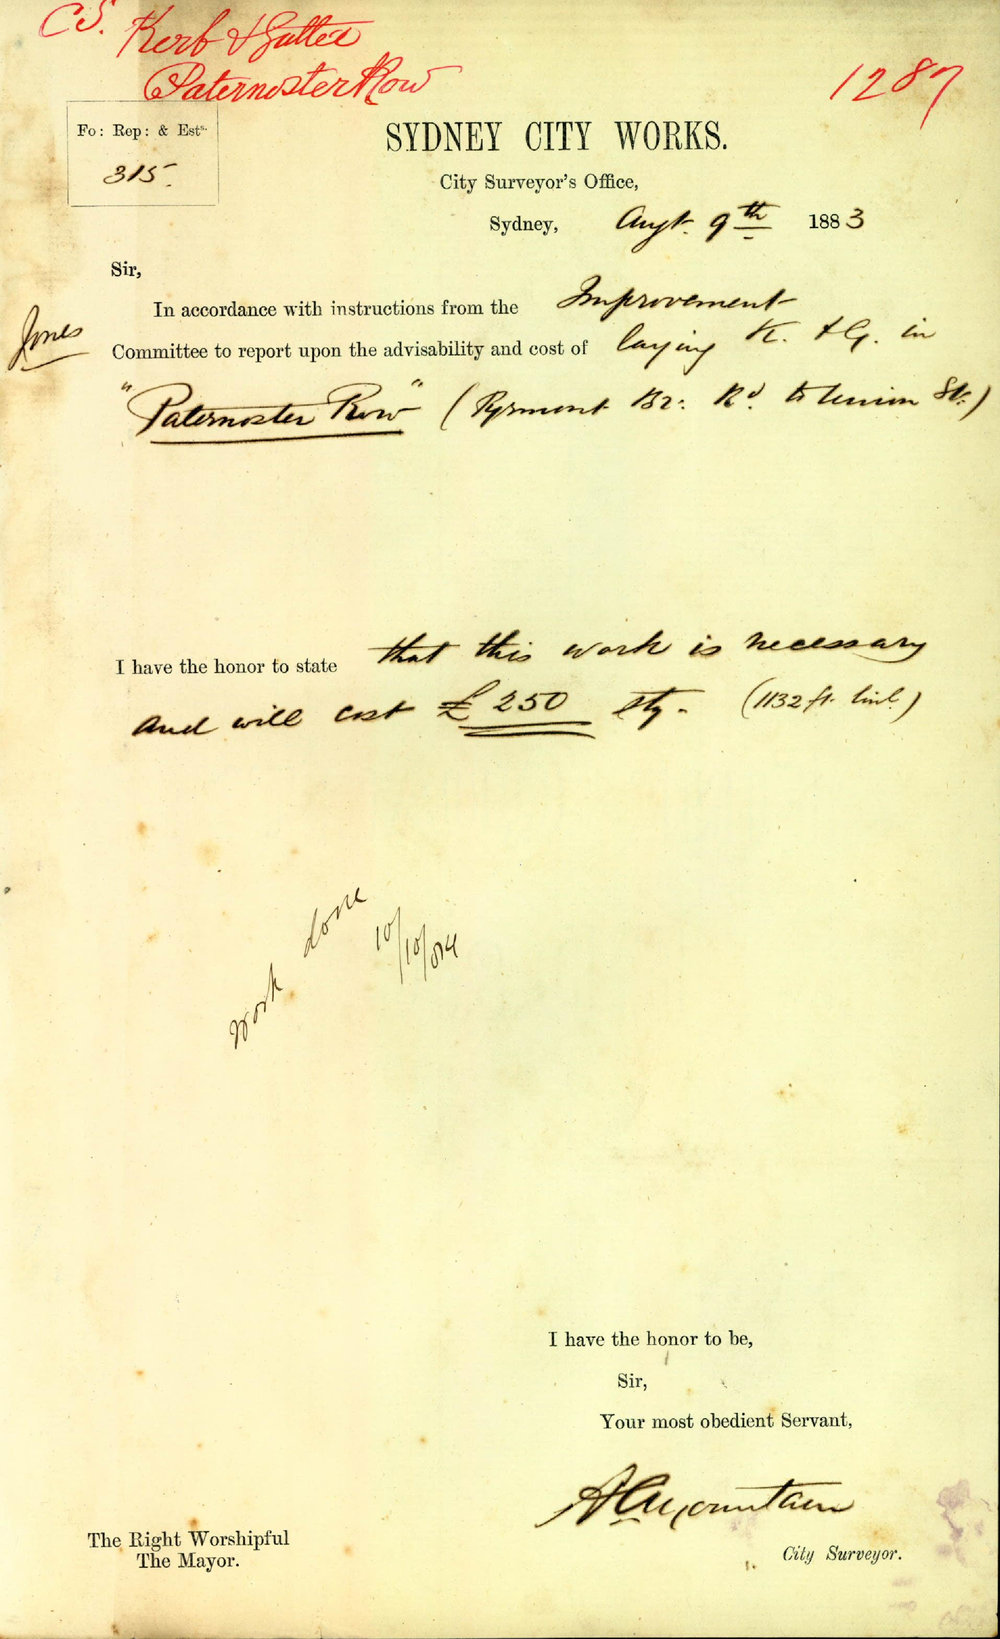 CS. Kerb & Gutter
Paternoster Row
1287
Fo: Rep: & Ests.
315.
SYDNEY CITY WORKS.
City Surveyor's Office,
Sydney, Augt. 9th 1883
Sir,
In accordance with instructions from the Improvement
Jones
Committee to report upon the advisability and cost of laying K. & G. in
"Paternoster Row" (Pyrmont Br: Rd. to Union St:)
I have the honor to state that this work is necessary
and will cost £250 stg. (1132 ft. linl.)
Work done
10/10/84
I have the honor to be,
Sir,
Your most obedient Servant,
A C Mountain
City Surveyor.
The Right Worshipful
The Mayor.